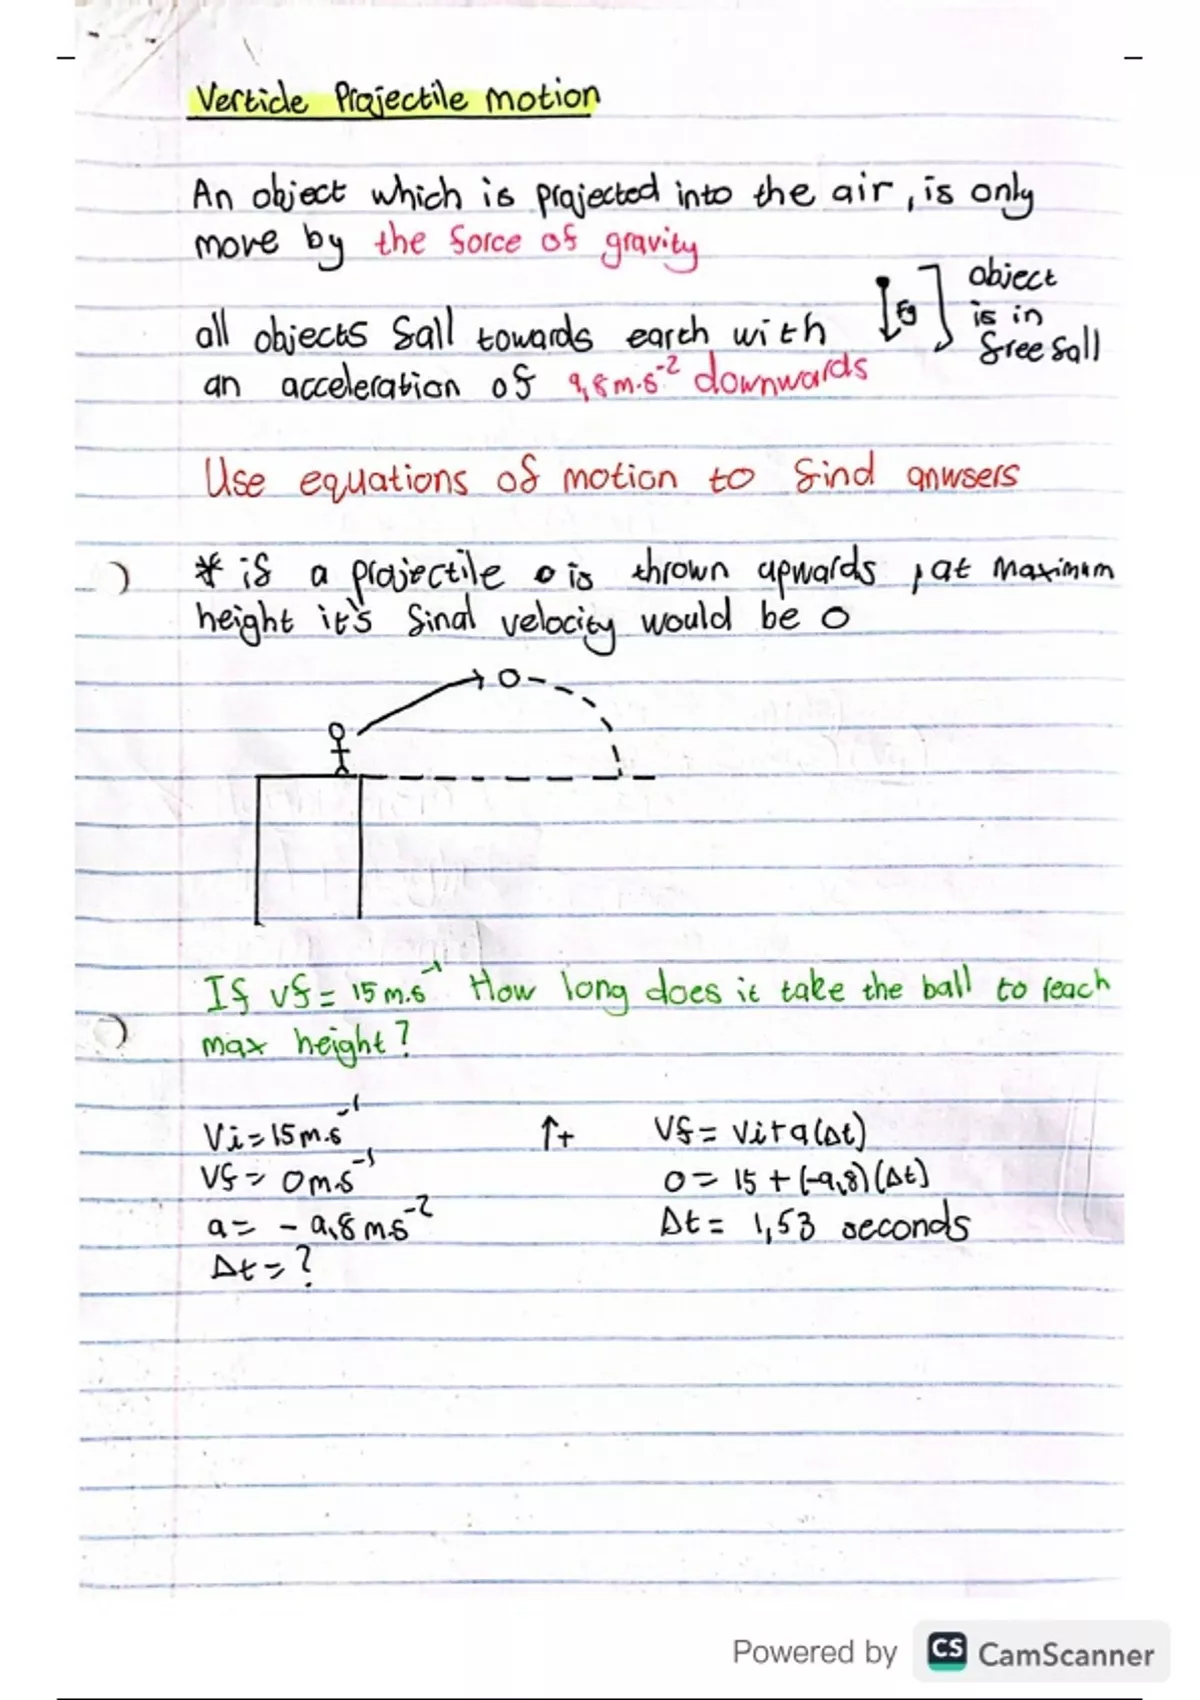 Verticle Projectile motion
An object which is projected into the air, is only
move by the force of gravity
object
is in
free fall
Fg
all objects fall towards earth with
an acceleration of 9,8 m.s⁻² downwards
Use equations of motion to find anwsers
* if a projectile is thrown upwards, at maximum
height it's final velocity would be 0
If vf = 15 m.s⁻¹ How long does it take the ball to reach
max height?
Vi = 15 m.s⁻¹
Vf = 0 m.s⁻¹
a = - 9,8 m.s⁻²
Δt = ?
↑+
Vf = Vi + a(Δt)
0 = 15 + (-9,8)(Δt)
Δt = 1,53 seconds
Powered by CS CamScanner